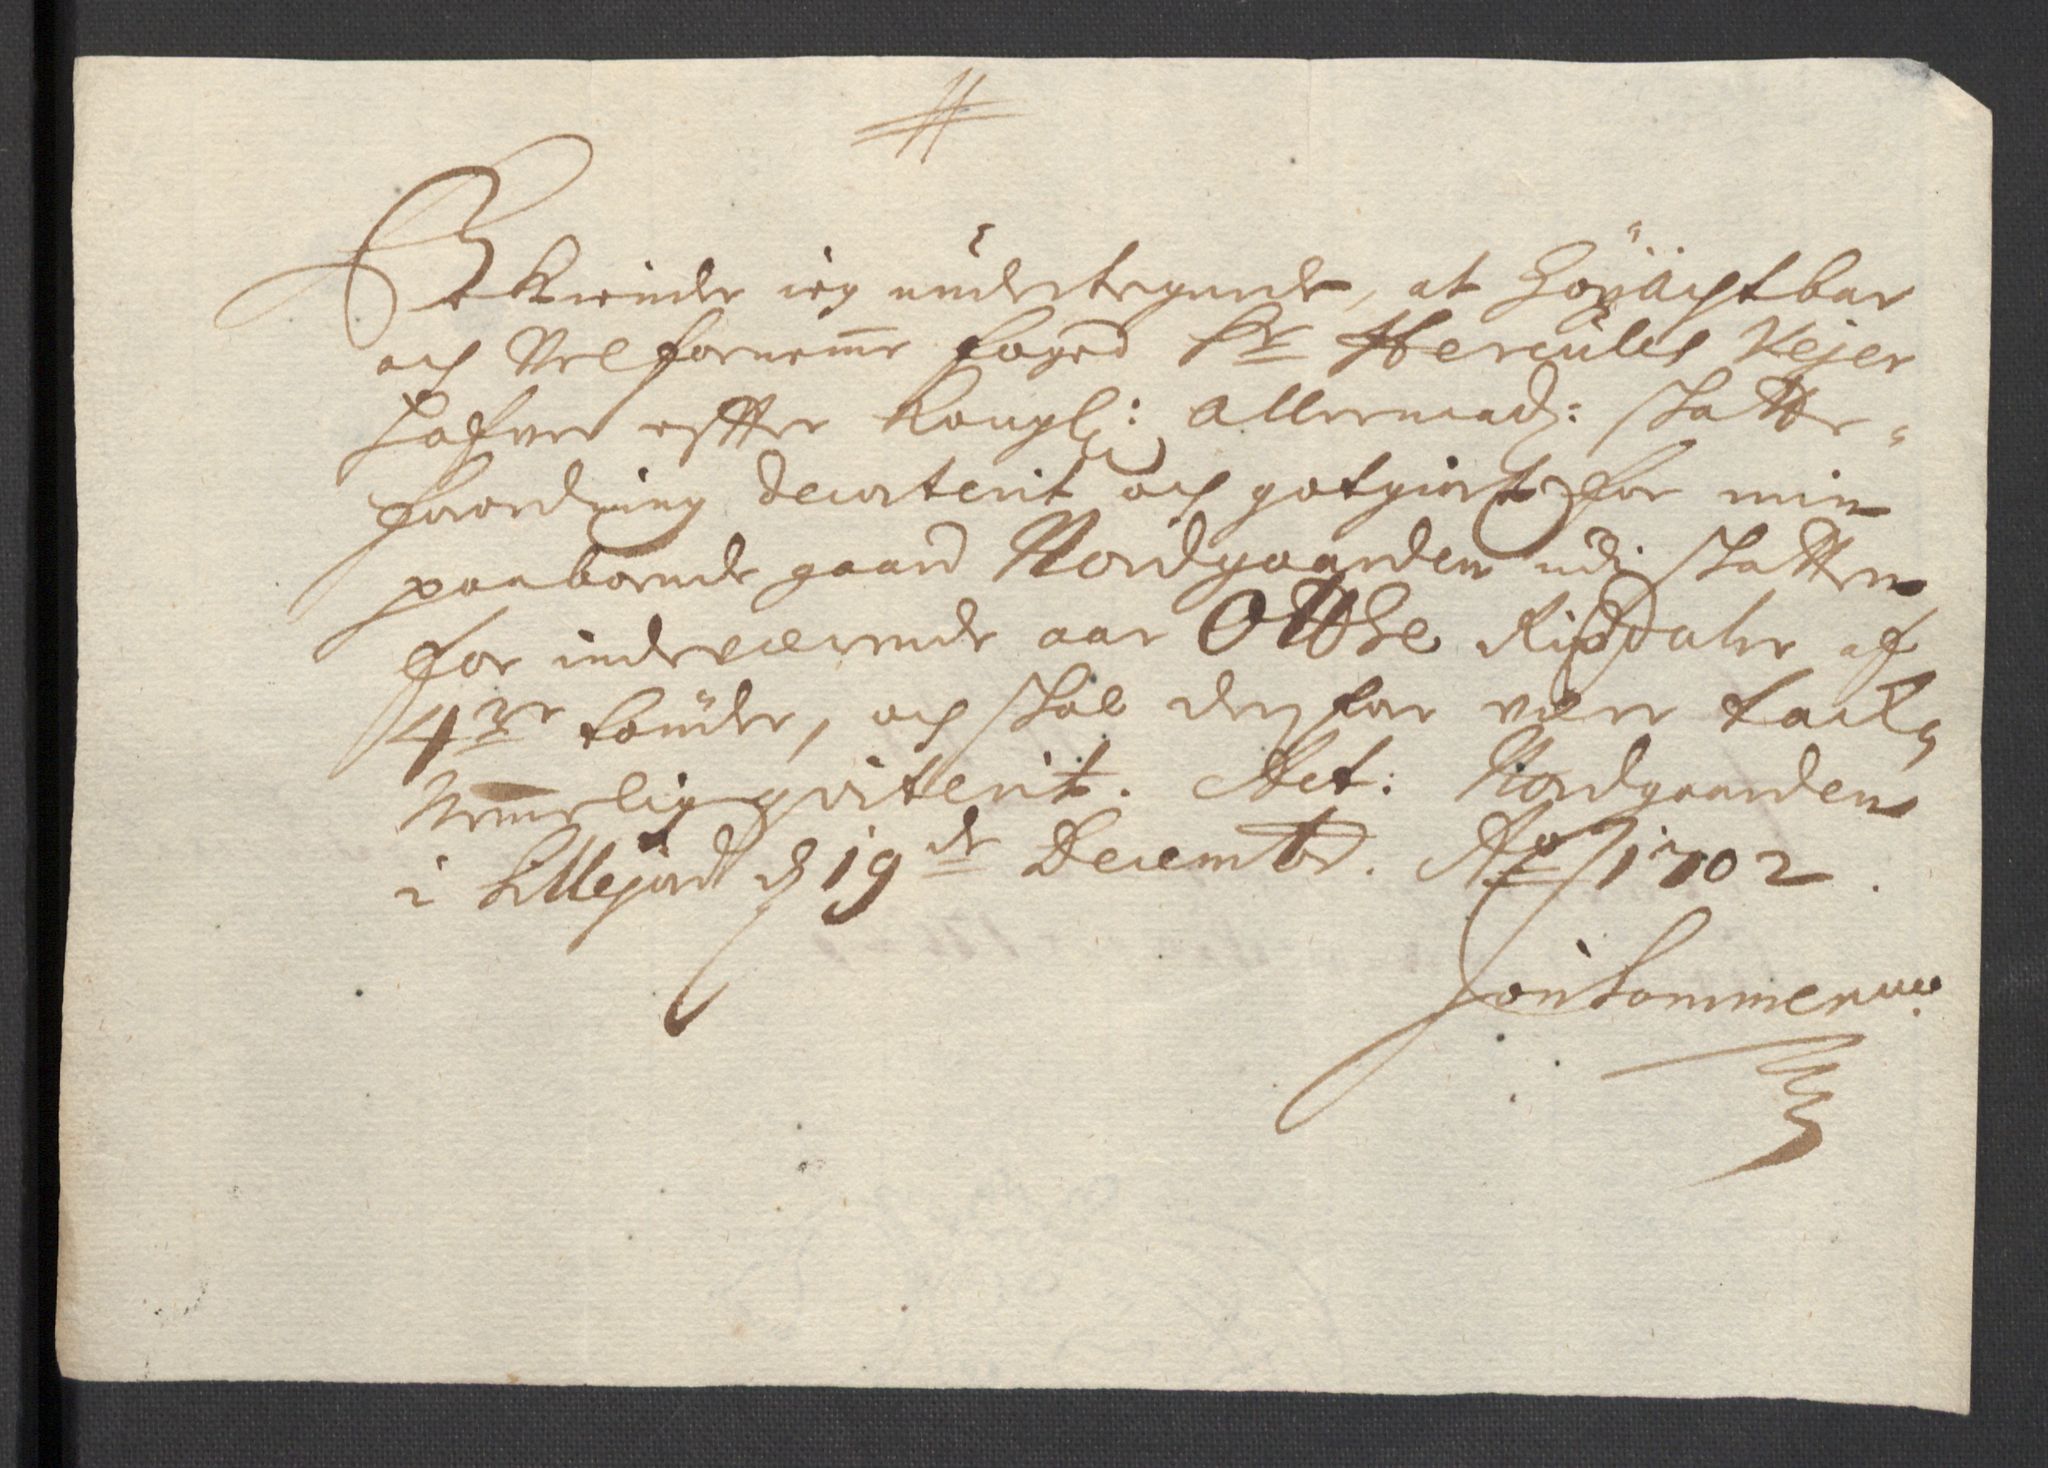 Bekiender ieg undertegnede, at Höyächtbar
och Velfornemme foged Sr Hercules Vejer
hafver effter Kongl: Allernaad: skatte-
forordning decorterit och gotgiort for min
paaboende gaard Nordgaarden udi skatten
for indeværende aar Otthe Rixdaler af
4re tønder, och skal derfor være tack-
nemmelig qviterit. Act: Nordgaarden
i Sillejord d 19de Decembr. Ao 1702.
Jon Sommer